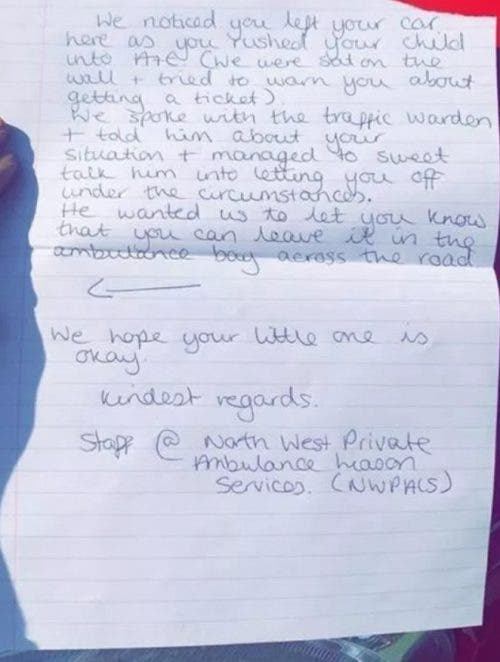 We noticed you left your car
here as you rushed your child
into A+E (We were sat on the
wall + tried to warn you about
getting a ticket).
We spoke with the traffic warden
+ told him about your
situation + managed to sweet
talk him into letting you off
under the circumstances.
He wanted us to let you know
that you can leave it in the
ambulance bay across the road
We hope your little one is
okay.
kindest regards.
Staff @ North West Private
Ambulance Liason
Services. (NWPALS)